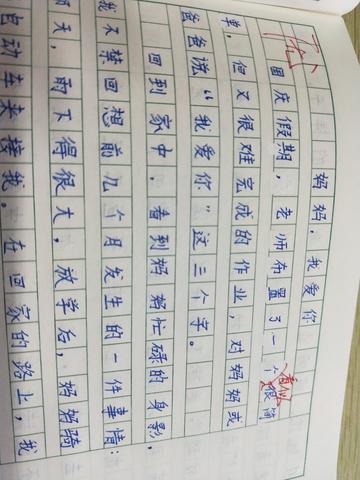 妈妈，我爱你
看似
国庆假期，老师布置了一个很简
单，但又很难完成的作业，对妈妈或
爸爸说“我爱你”这三个字。
回到家中，看到妈妈忙碌的身影，
我不禁回想前几个月发生的一件事情：
那天，雨下得很大，放学后，妈妈骑
动车来接我。在回家的路上，我